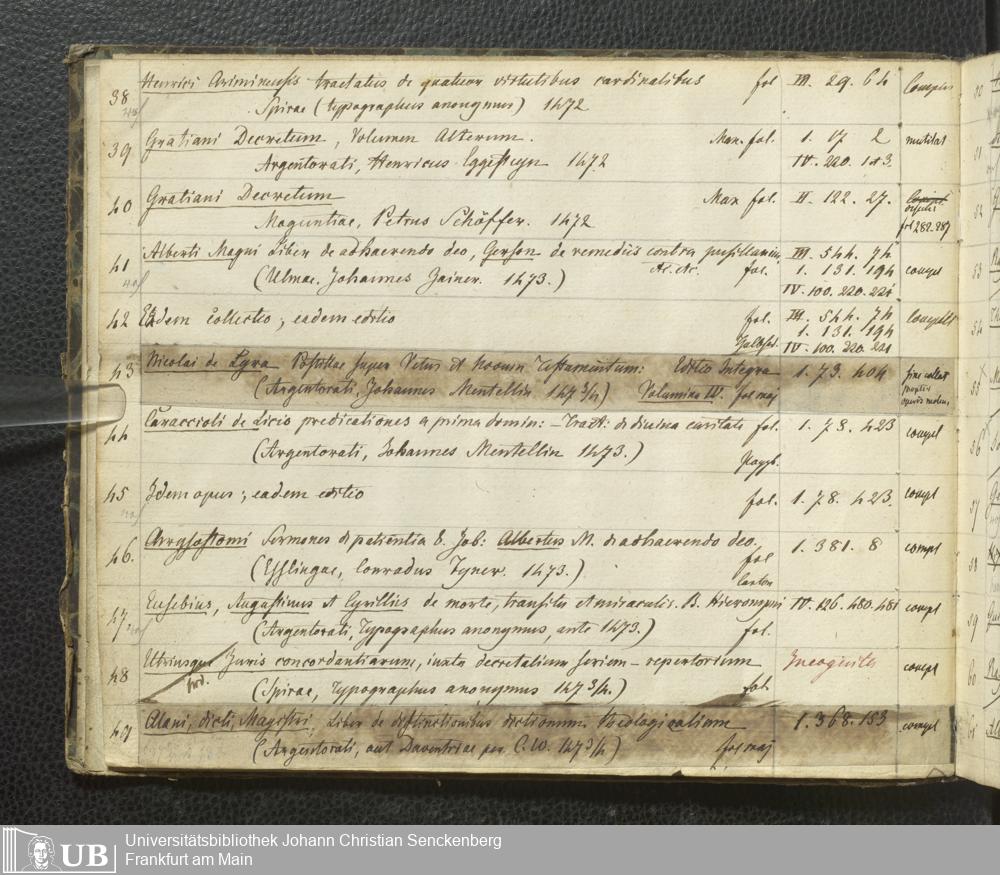 38 Henrici Ariminensis tractatus de quatuor virtutibus cardinalibus fol III. 29. 64 Complet
Spirae (typographus anonymus) 1472
39 Gratiani Decretum, Volumen Alterum. Max. fol. 1. 17 2 mutilat
Argentorati, Henricus Eggesteyn 1472 IV. 220. 143.
40 Gratiani Decretum Max fol. II. 122. 27.
Moguntiae, Petrus Schöffer. 1472 fol 282. 287
41 Alberti Magni Liber de adhaerendo deo, Gerson de remediis contra pusillanim, III. 544. 74
etc. etc. fol. 1. 131. 194 compl
(Ulmae. Johannes Zainer. 1473.) IV. 100. 220. 221
42 Eadem collectio; eadem editio fol. III. 544. 74 complt
1. 131. 194
IV. 100. 220. 221
43 Nicolai de Lyra Postillae super Vetus et Novum Testamentum: Editio Integra 1. 73. 404
(Argentorati, Johannes Mentellin 1473/4) Volumina IV. fol maj
44 Caraccioli de Licio predicationes a prima domin: – Tract: de divina caritate fol. 1. 78. 423 compl
(Argentorati, Johannes Mentellin 1473.)
45 Idem opus; eadem editio fol. 1. 78. 423. compl
46. Chrysostomi Sermones de patientia b. Job: Albertus M. de adhaerendo deo. 1. 381. 8 compl
fol
(Esslingae, Conradus Fyner. 1473.)
47 Eusebius, Augustinus et Cyrillus de morte, transitu et miraculis B. Hieronymi IV. 126. 480. 481 compl
(Argentorati, Typographus anonymus, ante 1473.) fol.
48 Utriusque Juris concordantiarum, iuxta decretalium seriem – repertorium Incognita compl
(Spirae, Typographus anonymus 1473/4.) fol.
49 Alani, dicti Magistri, Liber de distinctionibus dictionum theologicalium 1. 368. 153 compl
(Argentorati, aut Daventriae per C. W. 1473/4) fol maj
50
51
52
53
54
55
56
57
58
59
60
61
UB
Universitätsbibliothek Johann Christian Senckenberg
Frankfurt am Main